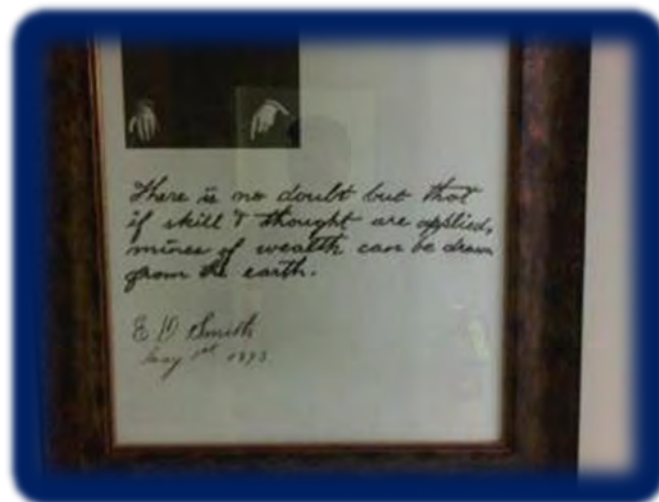 There is no doubt but that
if skill & thought are applied,
mines of wealth can be drawn
from the earth.
E D Smith
1st 1893